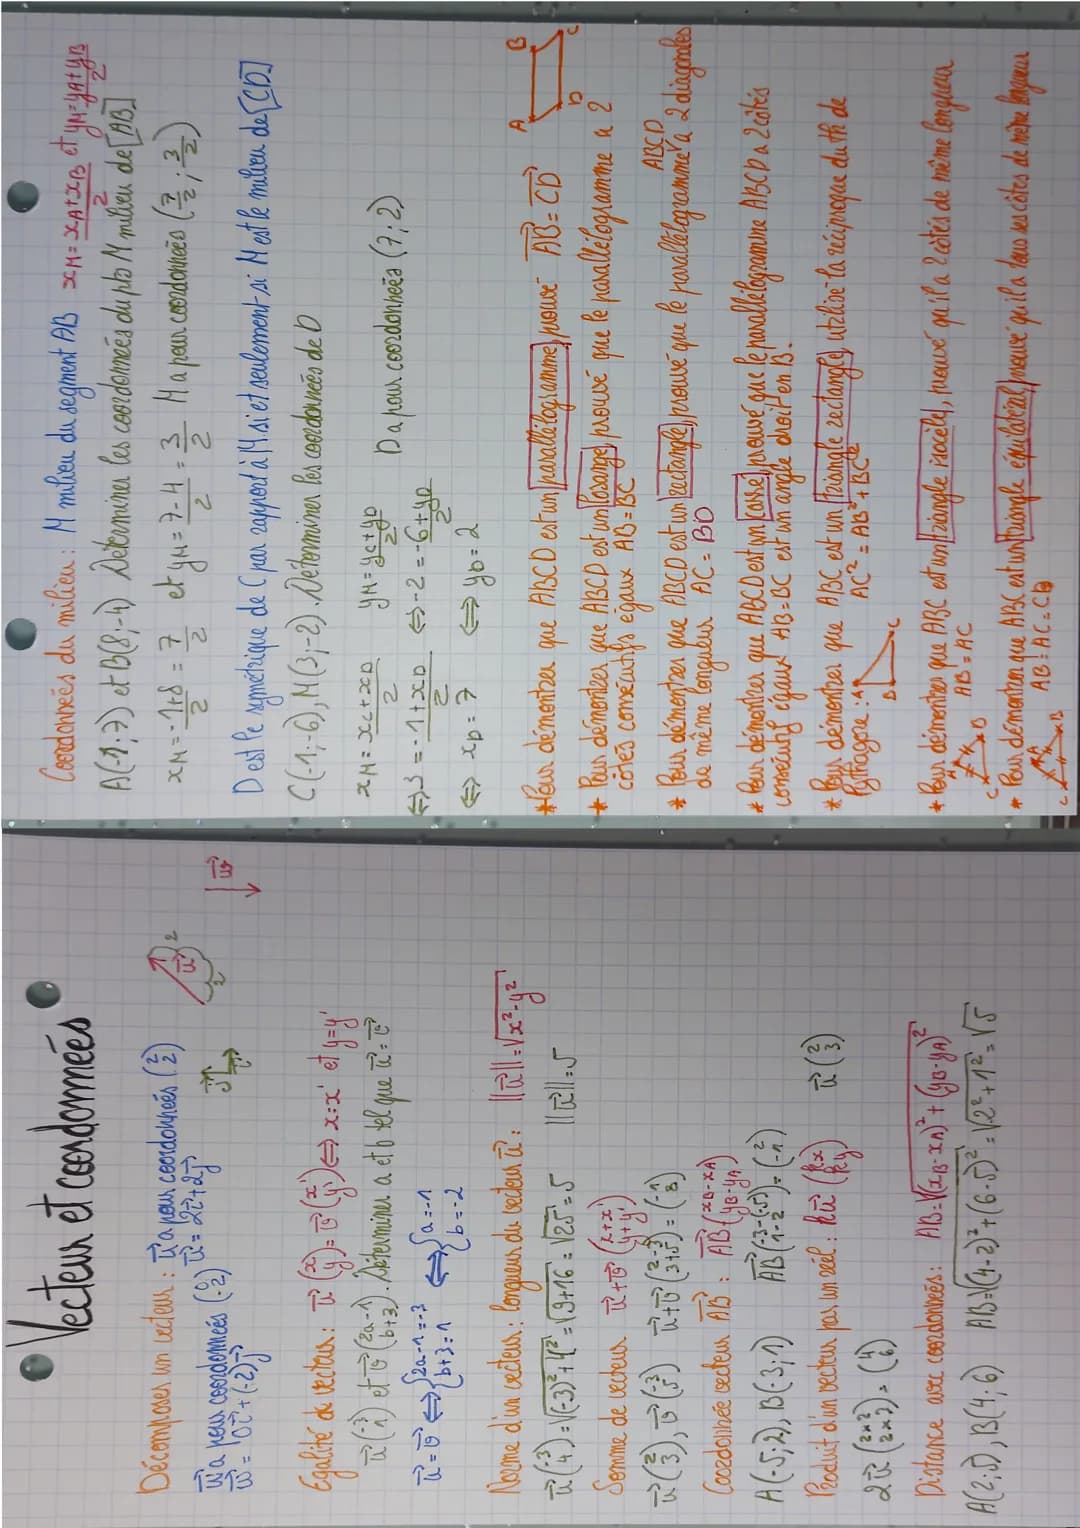 Vecteur et coordonnées
Décomposer un vecteur : u⃗ a pour coordonnées (2 2)
u⃗ = 2i⃗ + 2j⃗
w⃗ a pour coordonnées (0 -2)
w⃗ = 0i⃗ + (-2)j⃗
u⃗ 2 2
w⃗
Egalité de vecteur : u⃗ (x y) = v⃗ (x' y') ⇔ x = x' et y = y'
u⃗ (-3 1) et v⃗ (2a-1 b+3). Déterminer a et b tel que u⃗ = v⃗
u⃗ = v⃗ ⇔ { 2a-1 = -3 ⇔ { a = -1
b+3 = 1 b = -2
Norme d'un vecteur : longueur du vecteur u⃗ : ||u⃗|| = √x²-y²
u⃗ (-3 4) = √(-3)²+4² = √9+16 = √25 = 5 ||u⃗|| = 5
Somme de vecteur u⃗+v⃗ (x+x' y+y')
u⃗ (2 3), v⃗ (-3 5) u⃗+v⃗ (2-3 3+5) = (-1 8)
Coordonnée vecteur AB⃗ : AB⃗ (xB-xA yB-yA)
A(-5;2), B(-3;1) AB⃗ (-3-(-5) 1-2) = (2 -1)
Produit d'un vecteur par un réel : ku⃗ (kx ky) u⃗ (2 3)
2u⃗ (2×2 2×3) = (4 6)
Distance avec coordonnées : AB = √(xB-xA)² + (yB-yA)²
A(2;5), B(4;6) AB = √(4-2)² + (6-5)² = √2²+1² = √5
Coordonnées du milieu : M milieu du segment AB xM = xA+xB/2 et yM = yA+yB/2
A(-1;7) et B(8;-4) Déterminer les coordonnées du pto M milieu de [AB]
xM = -1+8/2 = 7/2 et yM = 7-4/2 = 3/2 M a pour coordonnées (7/2 ; 3/2)
D est le symétrique de C par rapport à M si et seulement si M est le milieu de [CD]
C(-1;-6), M(3;-2). Déterminer les coordonnées de D
xM = xC+xD/2 yM = yC+yD/2
⇔ 3 = -1+xD/2 ⇔ -2 = -6+yD/2 D a pour coordonnées (7;2)
⇔ xD = 7 ⇔ yD = 2
* Pour démontrer que ABCD est un parallélogramme, prouvé AB⃗ = CD⃗
A B C D
* Pour démontrer que ABCD est un losange, prouvé que le parallélogramme a 2
côtés consécutifs égaux AB = BC
* Pour démontrer que ABCD est un rectangle, prouvé que le parallélogramme ABCD a 2 diagonales
de même longueur AC = BD
* Pour démontrer que ABCD est un carré, prouvé que le parallélogramme ABCD a 2 côtés
consécutif égaux AB = BC est un angle droit en B.
* Pour démontrer que ABC est un triangle rectangle, utilise la réciproque du th de
Pythagore : AC² = AB² + BC²
A B C
* Pour démontrer que ABC est un triangle isocele, prouvé qu'il a 2 côtés de même longueur
A B C AB = AC
* Pour démontrer que ABC est un triangle équilatéral, prouvé qu'il a tous ses côtés de même longueur
A B C AB = AC = CB